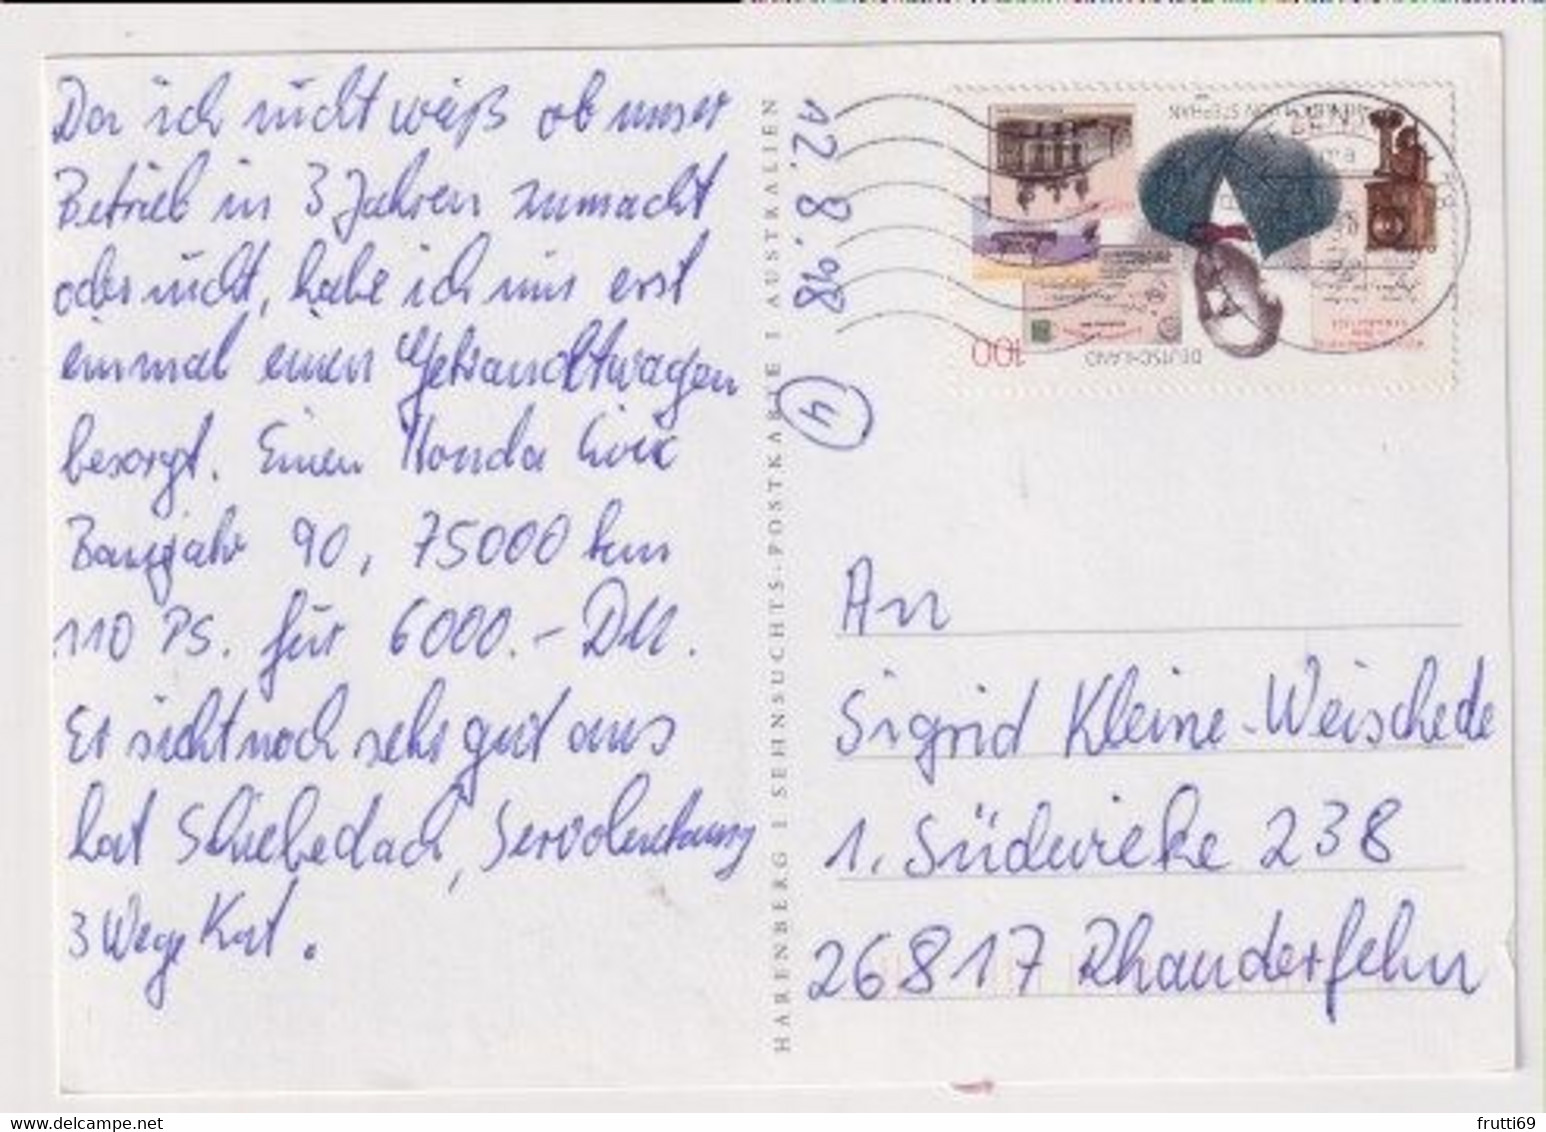 Da ich nicht weiß ob unser
Betrieb in 3 Jahren zumacht
oder nicht, habe ich mir erst
einmal einen Gebrauchtwagen
besorgt. Einen Honda Civic
Baujahr 90, 75000 km
110 PS. für 6000.- DM.
Er sieht noch sehr gut aus
hat Schiebedach, Servolenkung
3 Wege Kat.
HARENBERG SEHNSUCHTS-POSTKARTE AUSTRALIEN
12.8.98
4
HEINRICH VON STEPHAN
DEUTSCHLAND
100
An
Sigrid Kleine-Weischede
1. Südwieke 238
26817 Rhauderfehn
frutti69